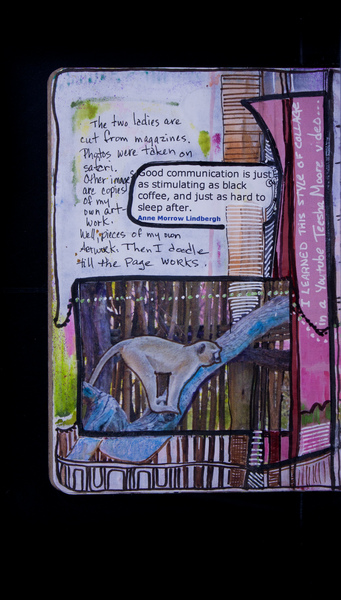 The two ladies are
cut from magazines.
Photos were taken on
safari.
Other images
are copies
of my
own art-
work.
Well, pieces of my own
Artwork. Then I doodle
till the Page WORKS.
Good communication is just
as stimulating as black
coffee, and just as hard to
sleep after.
Anne Morrow Lindbergh
I LEARNED THIS STYLE OF COLLAGE
in a Youtube Teesha Moore video...